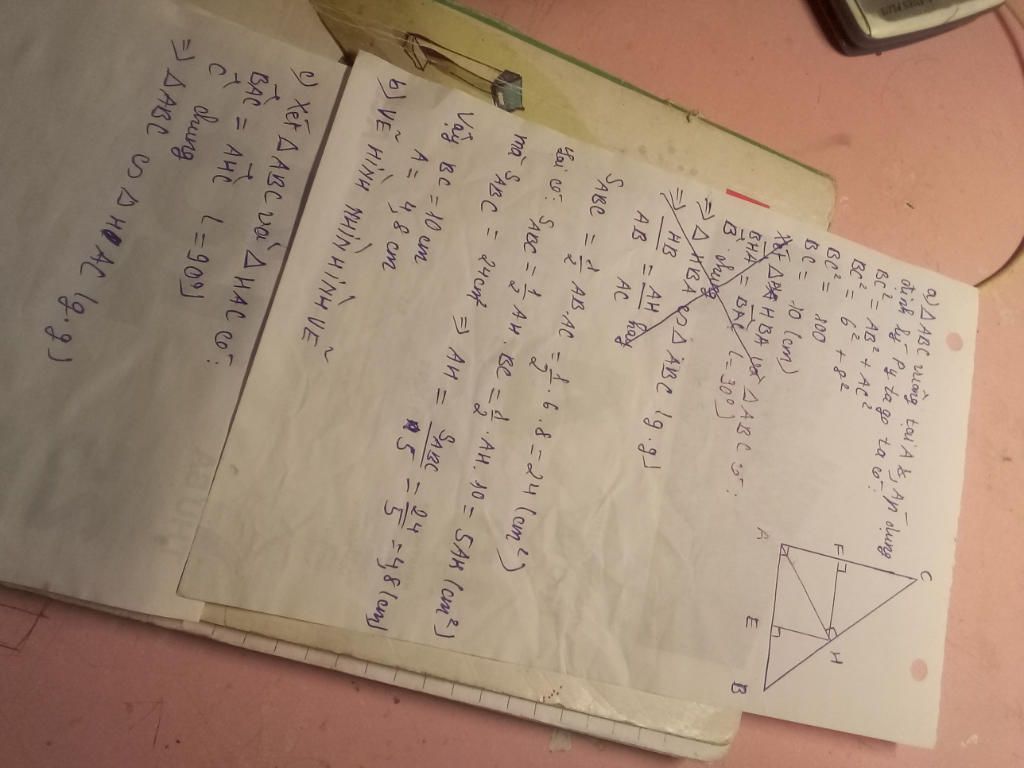 a) ΔABC vuông tại A, áp dụng
định lý Pytago ta có:
BC² = AB² + AC²
BC² = 6² + 8²
BC² = 100
BC = 10 (cm)
Xét ΔHBA và ΔABC có:
BHA = BAC (=90°)
B chung
=> ΔHBA ∽ ΔABC (g.g)
=> HB/AB = AH/AC hay
S ABC = 1/2 AB.AC = 1/2 . 6 . 8 = 24 (cm²)
S ABC = 1/2 AH . BC = 1/2 . AH . 10 = 5AH (cm²)
mà S ABC = 24cm² => AH = S ABC/5 = 24/5 = 4,8 (cm)
Vậy BC = 10 cm
A = 4,8 cm
b) VẼ HÌNH NHÌN HÌNH VẼ
c) Xét ΔABC và ΔHAC có:
BAC = AHC (=90°)
C chung
=> ΔABC ∽ ΔHAC (g.g)
C
F
H
A
E
B